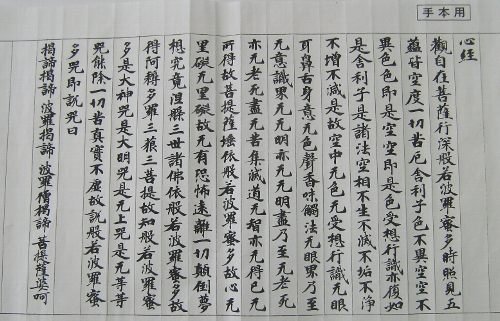 手本用
心経
觀自在菩薩行深般若波羅蜜多時照見五
蘊皆空度一切苦厄舍利子色不異空空不
異色色即是空空即是色受想行識亦復如
是舍利子是諸法空相不生不滅不垢不净
不增不減是故空中无色无受想行識无眼
耳鼻舌身意无色聲香味觸法无眼界乃至
无意識界无无明亦无无明盡乃至无老死
亦无老死盡无苦集滅道无智亦无得已无
所得故菩提薩埵依般若波羅蜜多故心无
罣礙无罣礙故无有恐怖遠離一切顛倒夢
想究竟涅槃三世諸佛依般若波羅蜜多故
得阿耨多羅三藐三菩提故知般若波羅蜜
多是大神咒是大明咒是无上咒是无等等
咒能除一切苦真實不虛故說般若波羅蜜
多咒即說咒曰
揭諦揭諦 波羅揭諦 波羅僧揭諦 菩提薩婆呵